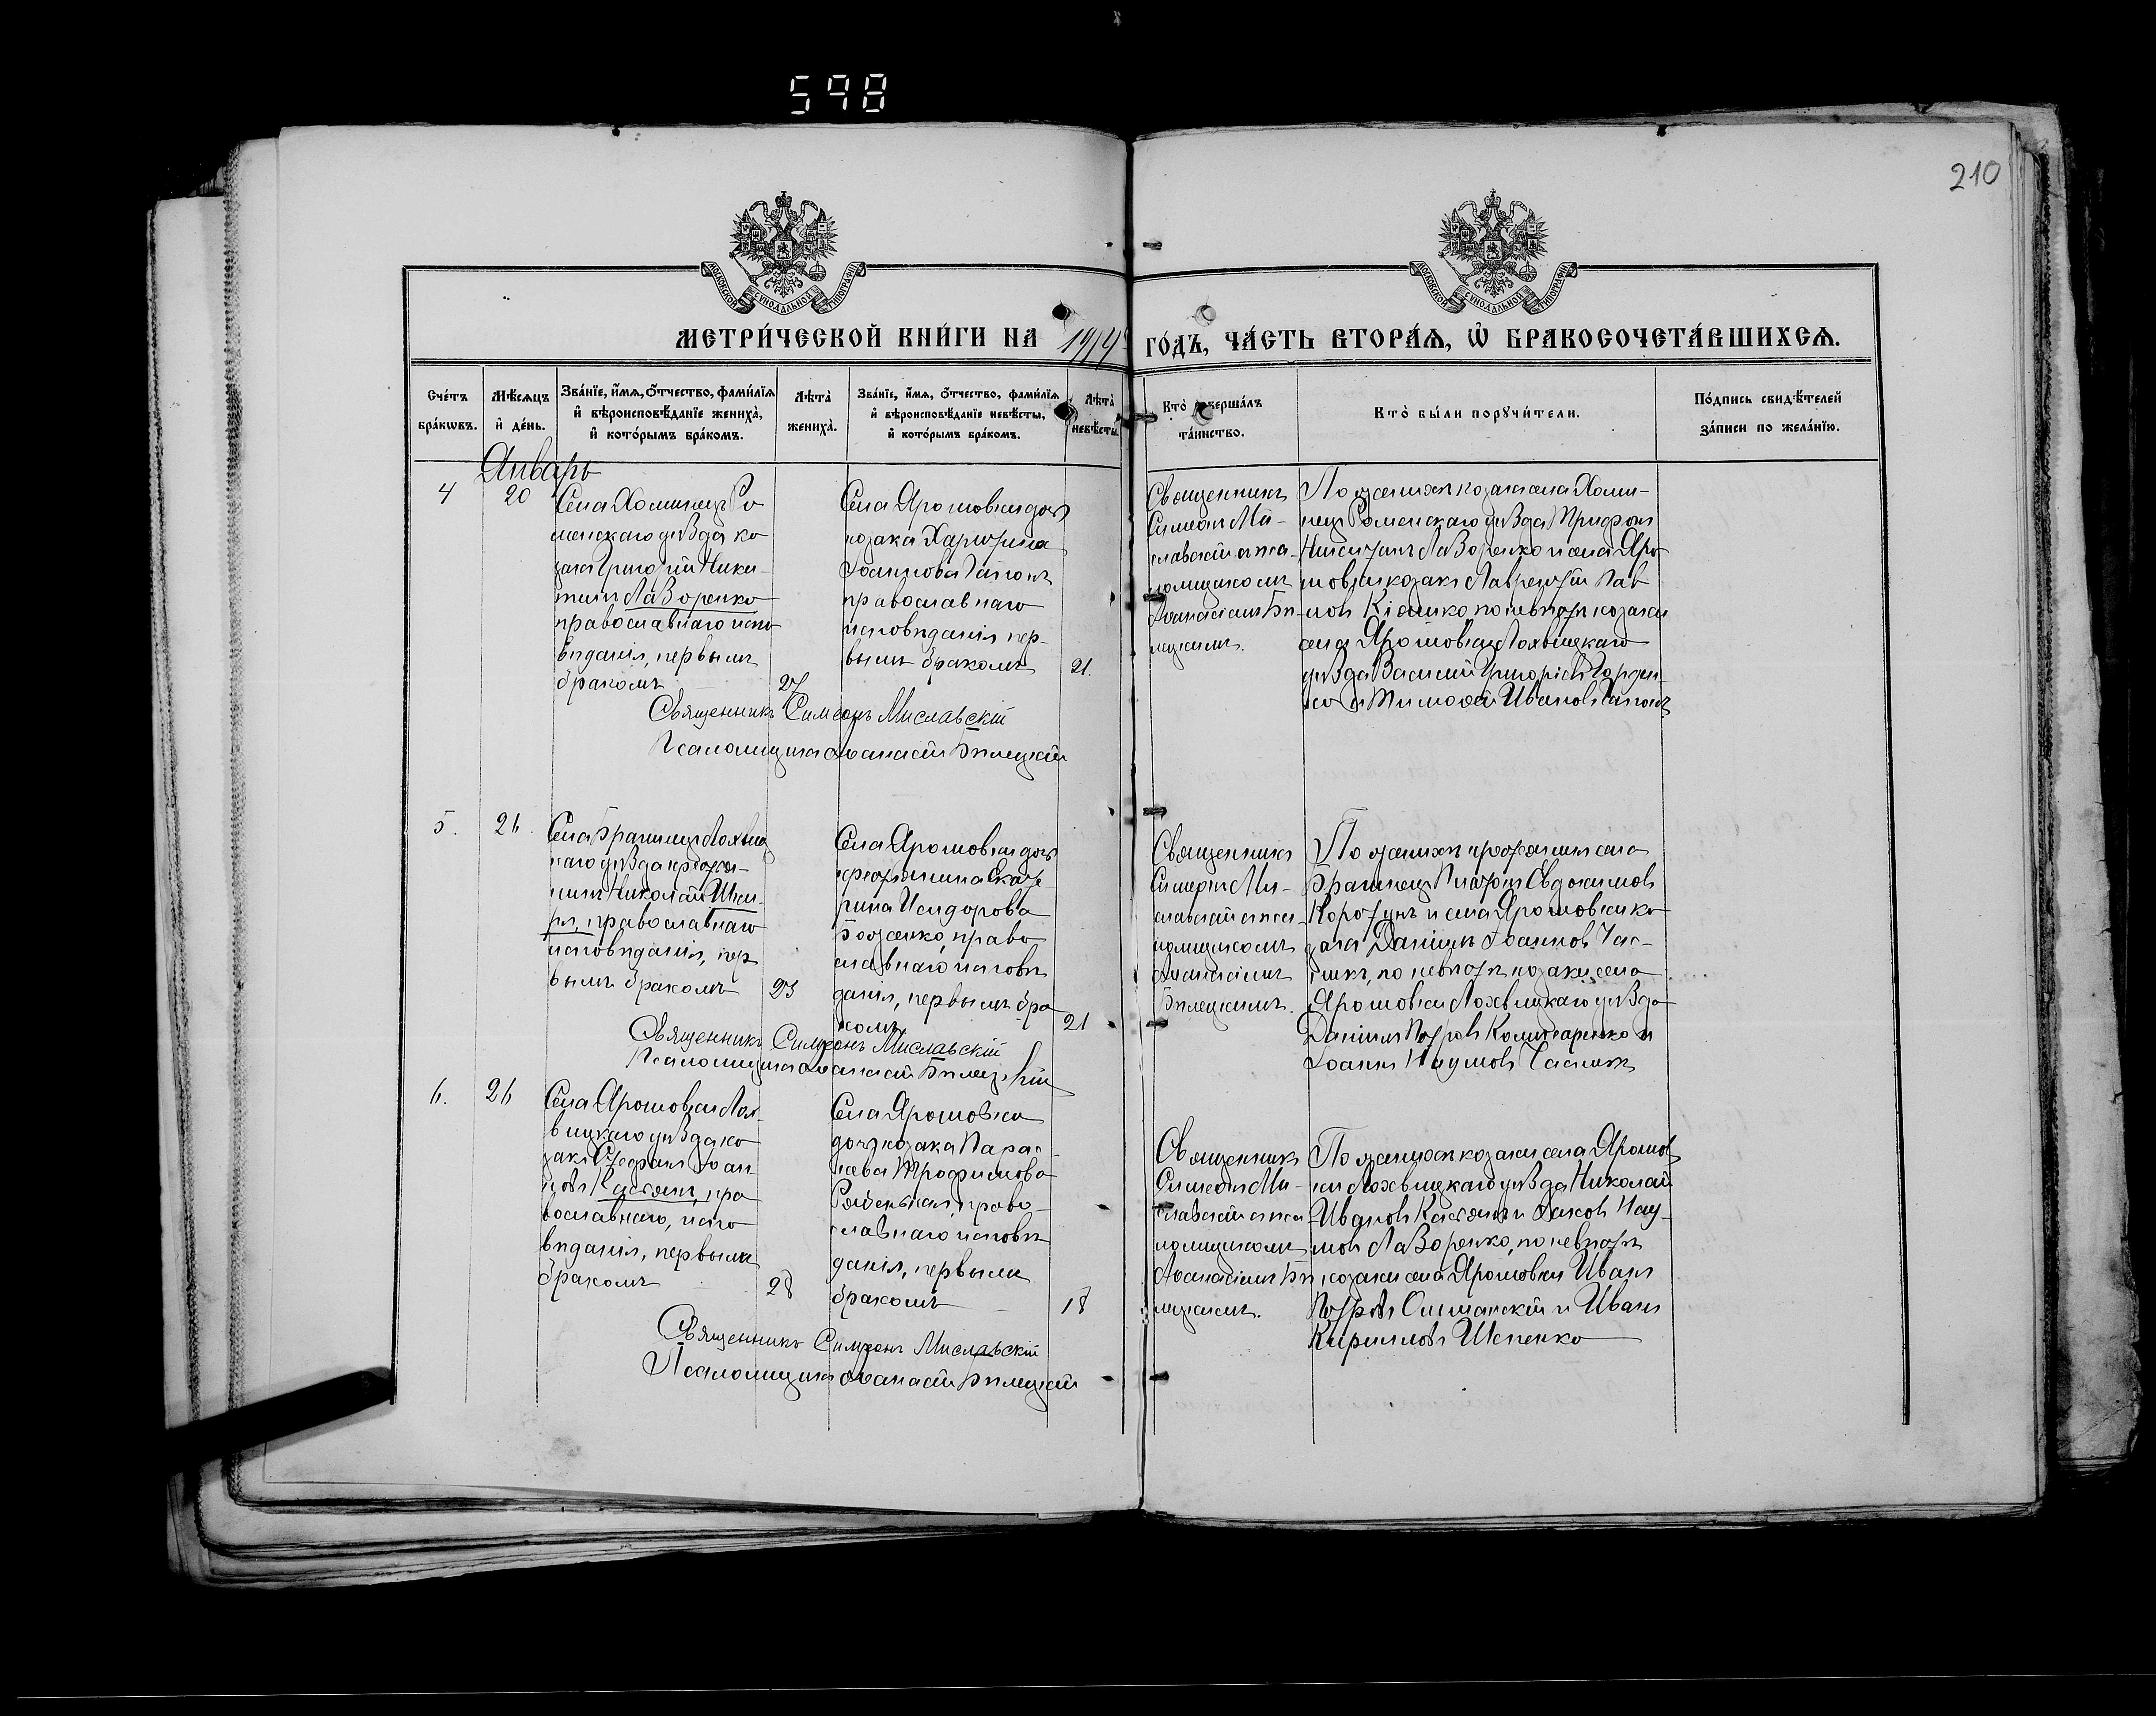 598
210
МОСКОВСКОЙ СѴНОДАЛЬНОЙ ТИПОГРАФІИ
МОСКОВСКОЙ СѴНОДАЛЬНОЙ ТИПОГРАФІИ
МЕТРИ́ЧЕСКОЙ КНИ́ГИ НА 1914 ГО́ДЪ, ЧА́СТЬ ВТОРА́Ѧ, Ѽ БРАКОСОЧЕТА́ВШИХСѦ.
Сче́тъ
бра́кѡвъ.
Мѣ́сѧцъ
и҆ де́нь.
Зва́нїе, и҆́мѧ, ѻ҆́тчество, фамѝлїѧ
и҆ вѣроисповѣ́данїе женихà,
и҆ кото́рымъ бра́комъ.
Лѣта̀
женихà.
Зва́нїе, и҆́мѧ, ѻ҆́тчество, фамѝлїѧ
и҆ вѣроисповѣ́данїе невѣ́сты,
и҆ кото́рымъ бра́комъ.
Лѣта̀
невѣ́сты.
Кто̀ соверша́лъ
та́инство.
Кто̀ бы́ли порꙋчи́тели.
По́дпись свидѣ́телей
за́писи по жела́нїю.
Январь
4
20
Села Хоминецъ Ро
менскаго уѣзда ко
закъ Григорій Ники-
тинъ Лазоренко
православнаго испо
вѣданія, первымъ
бракомъ
27
Села Ярошовки дочь
козака Харитина
Іоаннова
православнаго
исповѣданія пер-
вымъ бракомъ
21.
Священникъ
Симеонъ Ми-
славскій съ пса-
ломщикомъ
Аѳанасіемъ Бѣ-
лецкимъ.
По женихѣ козаки села Хоми-
нецъ Роменскаго уѣзда Трифонъ
Никитинъ Лазоренко и села Яро
шовки козакъ Лаврентій Пав
ловъ Кіяшко, по невѣстѣ козаки
села Ярошовки Лохвицкаго
уѣзда Василій Григоріевъ
и Тимоѳей Ивановъ
Священникъ Симеонъ Миславскій
Псаломщикъ Аѳанасій Бѣлецкій
5.
26.
Села Бранницъ Лохвиц
каго уѣзда крестья-
нинъ Николай
православнаго
исповѣданія, пер
вымъ бракомъ
23
Села Ярошовки дочь
крестьянина Екате-
рина Исидорова
Боженко, право
славнаго исповѣ
данія, первымъ бра
комъ
21
Священникъ
Симеонъ Ми-
славскій съ пса-
ломщикомъ
Аѳанасіемъ
Бѣлецкимъ.
По женихѣ крестьянинъ села
Бранницъ Платонъ Евдокимовъ
Коротунъ и села Ярошовки ко
закъ Даніилъ Іоанновъ Час-
никъ, по невѣстѣ козаки села
Ярошовки Лохвицкаго уѣзда
Даніилъ Петровъ Комисаренко и
Іоаннъ Наумовъ Часникъ
Священникъ Симеонъ Миславскій
Псаломщикъ Аѳанасій Бѣлецкій
6.
26
Села Ярошовки Лох
вицкаго уѣзда ко
закъ Стефанъ Іоан
новъ Касьянъ, пра
вославнаго, испо
вѣданія, первымъ
бракомъ
28
Села Ярошовки
дочь козака Парас-
кева Трофимова
право-
славнаго исповѣ
данія, первымъ
бракомъ
18
Священникъ
Симеонъ Ми-
славскій съ пса-
ломщикомъ
Аѳанасіемъ Бѣ
лецкимъ.
По женихѣ козаки села Ярошов
ки Лохвицкаго уѣзда Николай
Ивановъ Касьянъ и Іаковъ Нау-
мовъ Лазоренко, по невѣстѣ
козаки села Ярошовки Иванъ
Петровъ Симанскій и Иванъ
Кирилловъ Шепенко
Священникъ Симеонъ Миславскій
Псаломщикъ Аѳанасій Бѣлецкій